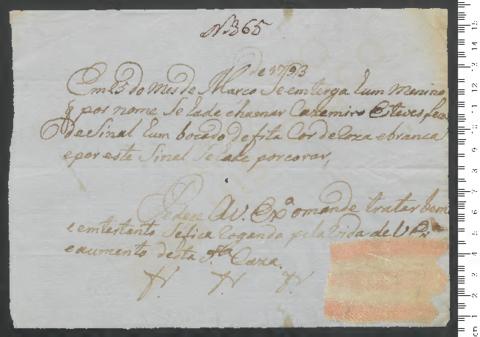 N 365
de 1793
Em 15 do Mes de Marco Se emterga hum Menino
q por nome Se lade chamar Cazemiro Esteves
de Sinal hum bocado de fita Cor de Roza e branca
e por este Sinal Se lade porcorar,
Pedese A V. Exª o mande tratar bem
e emtertanto se fica rogando pella Vida de V Exª
e aumento desta Stª Caza.